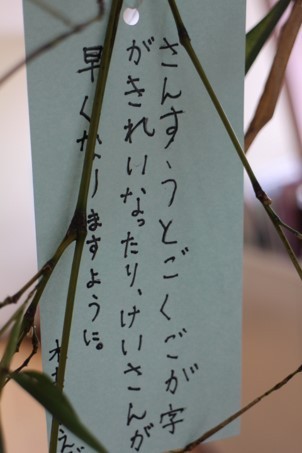 さんすうとごくごが字
がきれいなったり、けいさんが
早くなりますように。